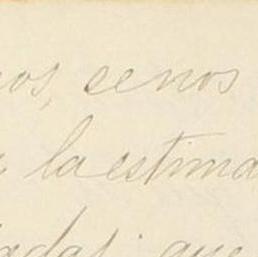 os, cenos
la estima
adas; que